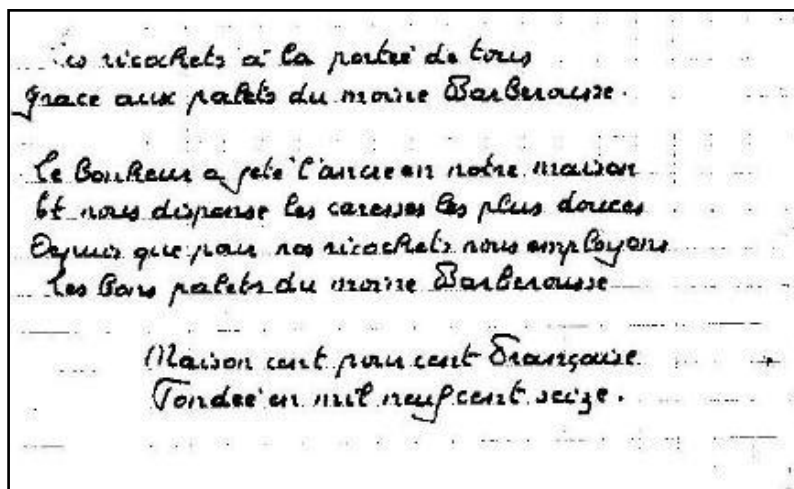 Les ricochets à la portée de tous
Grace aux palets du moine Barberousse.
Le Bonheur a jeté l'ancre en notre maison
Et nous dispense les caresses les plus douces
Depuis que pour nos ricochets nous employons
Les Bons palets du moine Barberousse
Maison cent pour cent Française
Fondée en mil neuf cent seize.